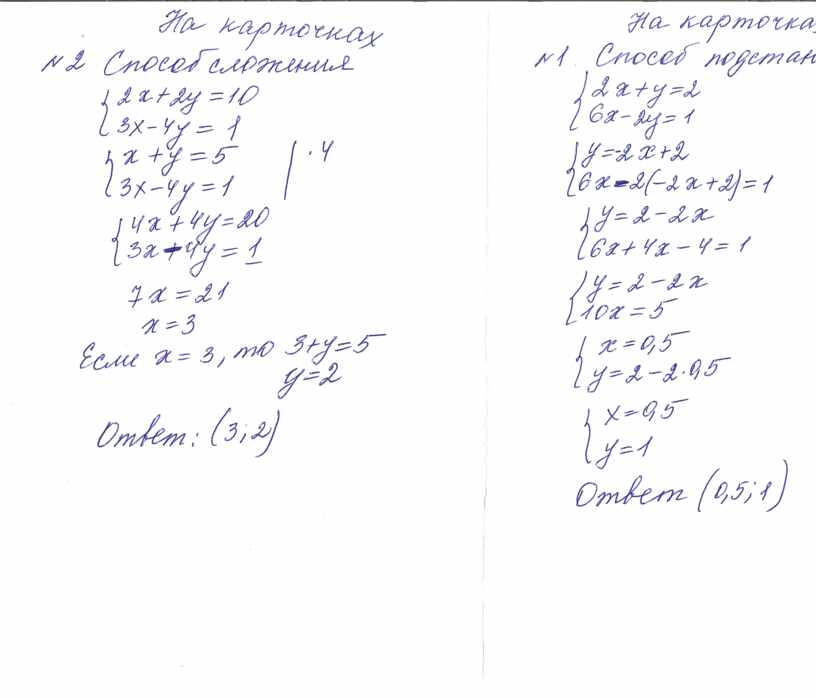 На карточках
№2 Способ сложения
2x+2y=10
3x-4y=1
x+y=5 | ·4
3x-4y=1
4x+4y=20
3x-4y=1
7x=21
x=3
Если x=3, то 3+y=5
y=2
Ответ: (3;2)
На карточках
№1 Способ подстан
2x+y=2
6x-2y=1
y=-2x+2
6x-2(-2x+2)=1
y=2-2x
6x+4x-4=1
y=2-2x
10x=5
x=0,5
y=2-2·0,5
x=0,5
y=1
Ответ (0,5;1)